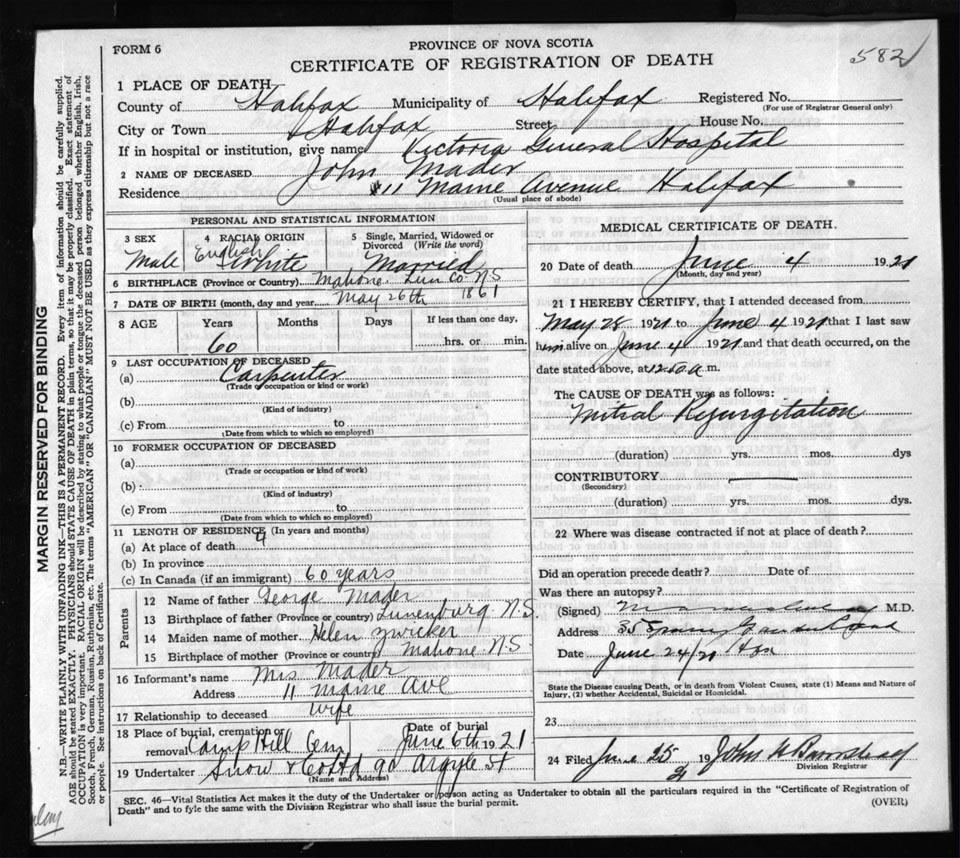 FORM 6
PROVINCE OF NOVA SCOTIA
582
CERTIFICATE OF REGISTRATION OF DEATH
1 PLACE OF DEATH
County of Halifax Municipality of Halifax Registered No.
(For use of Registrar General only)
City or Town Halifax Street House No.
If in hospital or institution, give name Victoria General Hospital
2 NAME OF DECEASED John Mader
Residence 11 Maine Avenue Halifax
(Usual place of abode)
PERSONAL AND STATISTICAL INFORMATION
3 SEX 4 RACIAL ORIGIN 5 Single, Married, Widowed or Divorced (Write the word)
Male English White Married
6 BIRTHPLACE (Province or Country) Mahone Lun Co. N.S
7 DATE OF BIRTH (month, day and year) May 26th 1861
8 AGE Years Months Days If less than one day,
60 hrs. or min.
9 LAST OCCUPATION OF DECEASED
(a) Carpenter
(Trade or occupation or kind of work)
(b)
(Kind of industry)
(c) From to
(Date from which to which so employed)
10 FORMER OCCUPATION OF DECEASED
(a)
(Trade or occupation or kind of work)
(b)
(Kind of industry)
(c) From to
(Date from which to which so employed)
11 LENGTH OF RESIDENCE (In years and months)
(a) At place of death 4
(b) In province
(c) In Canada (if an immigrant) 60 years
Parents
12 Name of father George Mader
13 Birthplace of father (Province or country) Lunenburg. N.S.
14 Maiden name of mother Helen Zwicker
15 Birthplace of mother (Province or country) Mahone. N.S
16 Informant's name Mrs Mader
Address 11 Maine Ave
17 Relationship to deceased Wife
18 Place of burial, cremation or removal Camp Hill Cem Date of burial June 6th 1921
19 Undertaker Snow & Co Ltd 90 Argyle St
(Name and Address)
MEDICAL CERTIFICATE OF DEATH.
20 Date of death June 4 1921
(Month, day and year)
21 I HEREBY CERTIFY, that I attended deceased from
May 28 1921 to June 4 1921 that I last saw
him alive on June 4 1921 and that death occurred, on the
date stated above, at a.m.
The CAUSE OF DEATH was as follows:
Mitral Regurgitation
(duration) yrs. mos. dys
CONTRIBUTORY
(Secondary)
(duration) yrs. mos. dys.
22 Where was disease contracted if not at place of death?
Did an operation precede death? Date of
Was there an autopsy?
(Signed) M.D.
Address
Date June 24/21
State the Disease causing Death, or in death from Violent Causes, state (1) Means and Nature of
Injury, (2) whether Accidental, Suicidal or Homicidal.
23
24 Filed June 25 19 21 John
Division Registrar
SEC. 46—Vital Statistics Act makes it the duty of the Undertaker or person acting as Undertaker to obtain all the particulars required in the "Certificate of Registration of
Death" and to fyle the same with the Division Registrar who shall issue the burial permit.
(OVER)
MARGIN RESERVED FOR BINDING
N.B.—WRITE PLAINLY WITH UNFADING INK—THIS IS A PERMANENT RECORD. Every item of information should be carefully supplied.
AGE should be stated EXACTLY. PHYSICIANS should STATE CAUSE OF DEATH in plain terms, so that it may be properly classified. Exact statement of
OCCUPATION is very important. RACIAL ORIGIN will be described by stating to what people or tongue the deceased person belonged whether English, Irish,
Scotch, French, German, Russian, Ruthenian, etc. The terms "AMERICAN" OR "CANADIAN" MUST NOT BE USED as they express citizenship but not a race
or people. See instructions on back of Certificate.